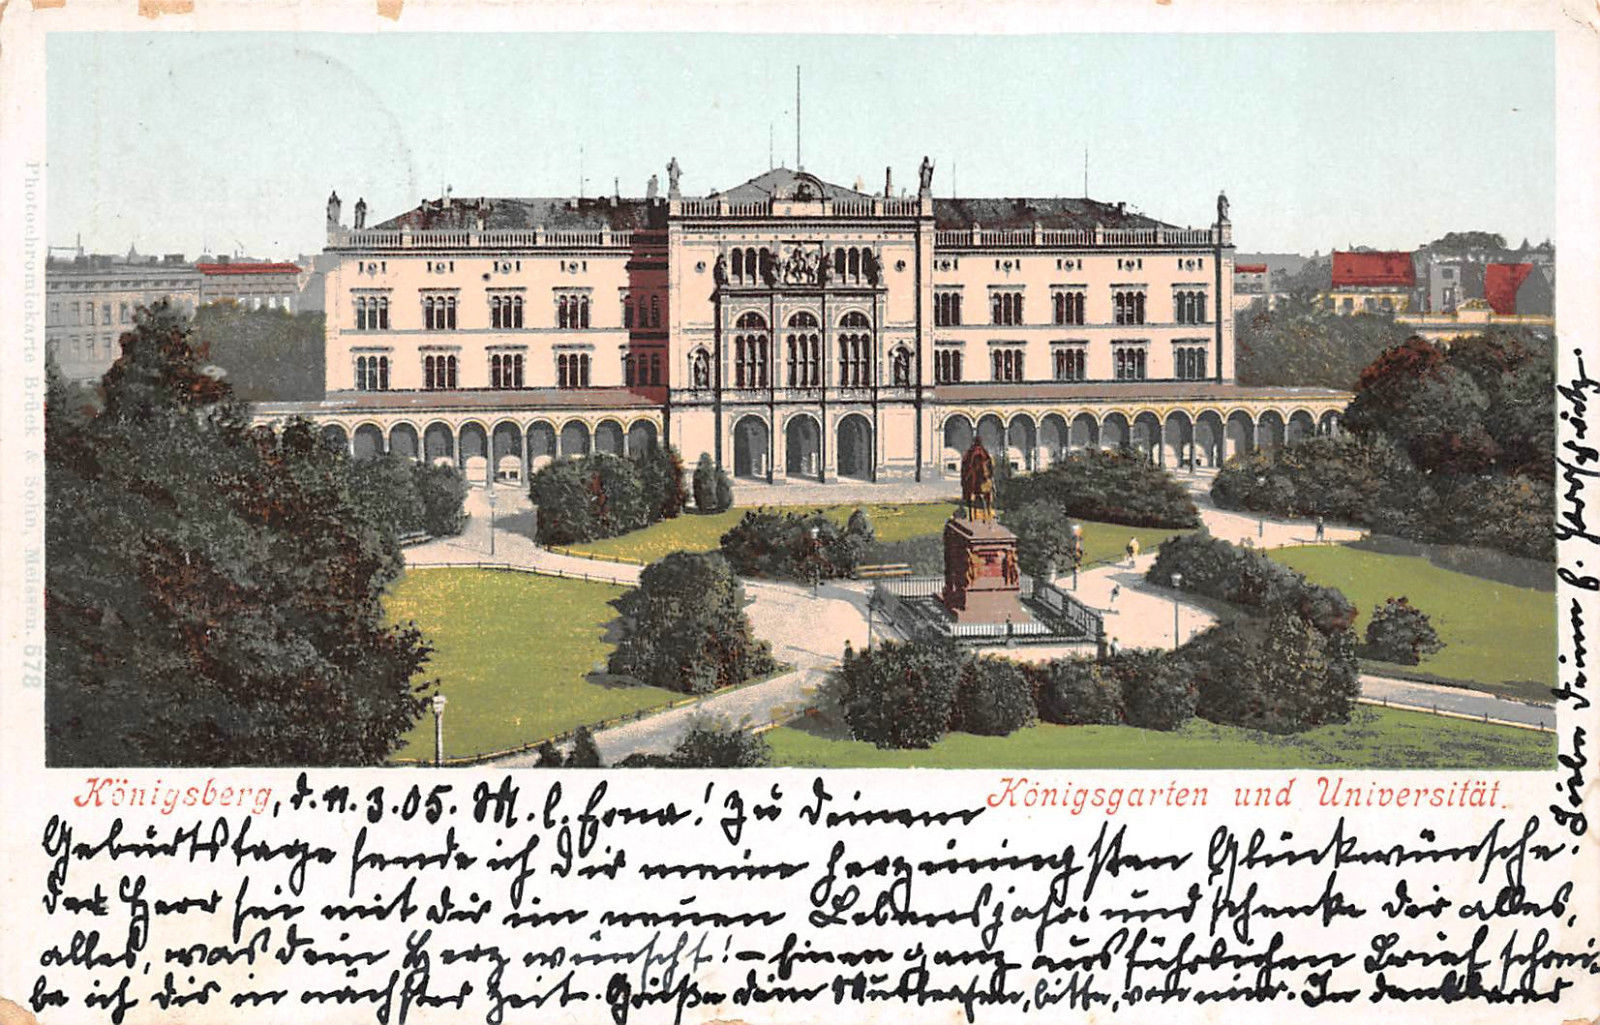 Photochromiekarte Brück & Sohn, Meissen. 578
Königsberg, d. 11.3.05. M. l. Erna! Zu Deinem
Königsgarten und Universität.
Geburtstage sende ich Dir meine herzinnigsten Glückwünsche.
Der Herr sei mit dir im neuen Lebensjahr und schenke dir alles,
alles, was dein Herz wünscht! – Einen ganz ausführlichen Brief schrei-
be ich dir in nächster Zeit. Grüße dein Mutterchen, bitte, von mir. In dankbarer
Liebe deine